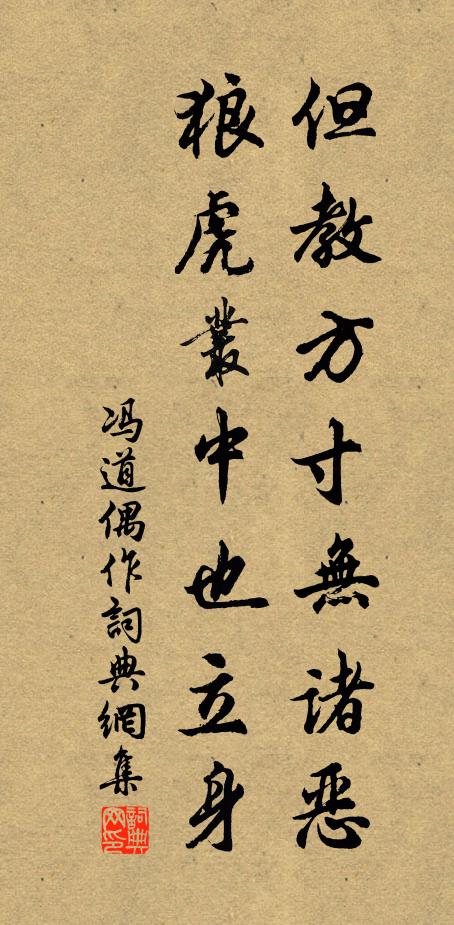 但教方寸無諸惡
狼虎叢中也立身
冯道偶作詞典網集
詞典網印